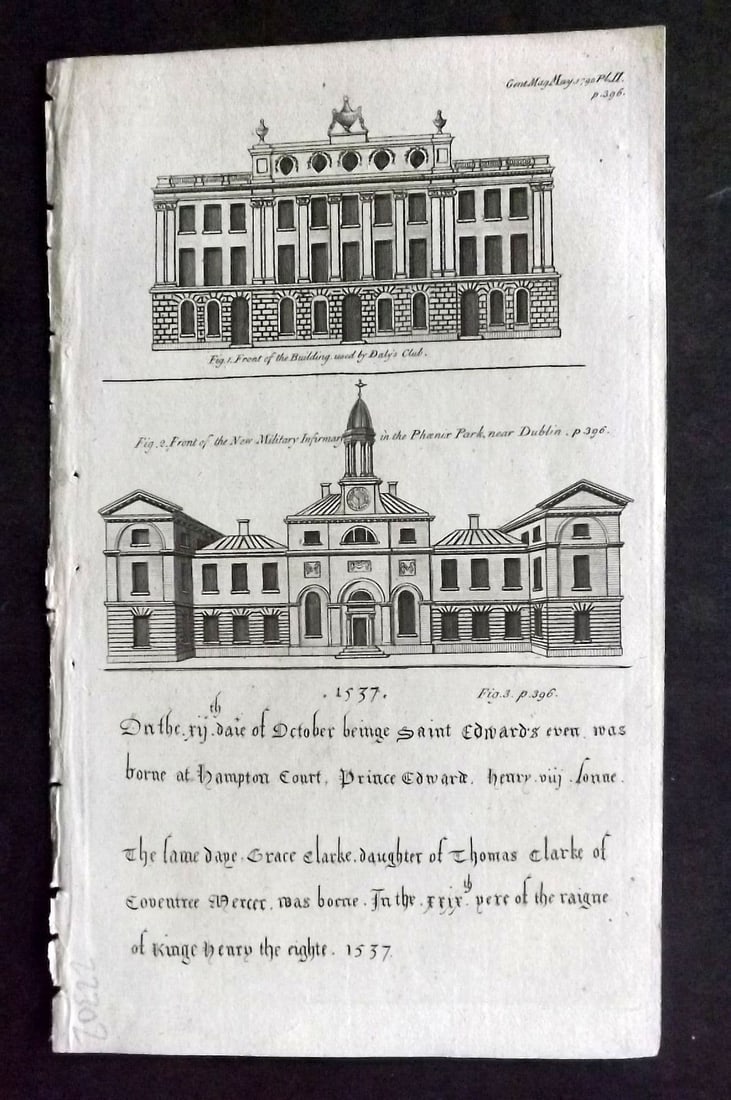 Gent. Mag. May 1790 Pl. II.
p. 396.
Fig. 1. Front of the Building used by Daly's Club.
Fig. 2. Front of the New Military Infirmary in the Phœnix Park, near Dublin. p. 396.
. 1537.
Fig. 3. p. 396.
On the .xijth. daie of October beinge Saint Edward's even was
borne at Hampton Court, Prince Edward. Henry .viij .sonne.
The same daye . Grace Clarke. daughter of Thomas Clarke of
Coventree Mercer. was borne. In the .xxixth. yere of the raigne
of Kinge Henry the eighte. 1537.
22307